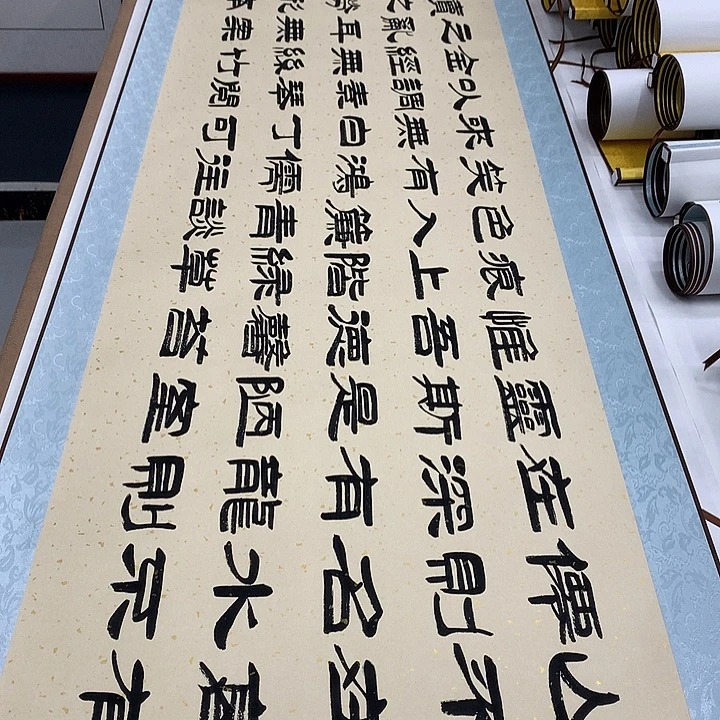 山不在高有
僊則名水不
在深有龍則
靈斯是陋室
惟吾德馨苔
痕上階綠草
色入簾青談
笑有鴻儒往
來無白丁可
以調素琴閱
金經無絲竹
之亂耳無案
牘之勞形